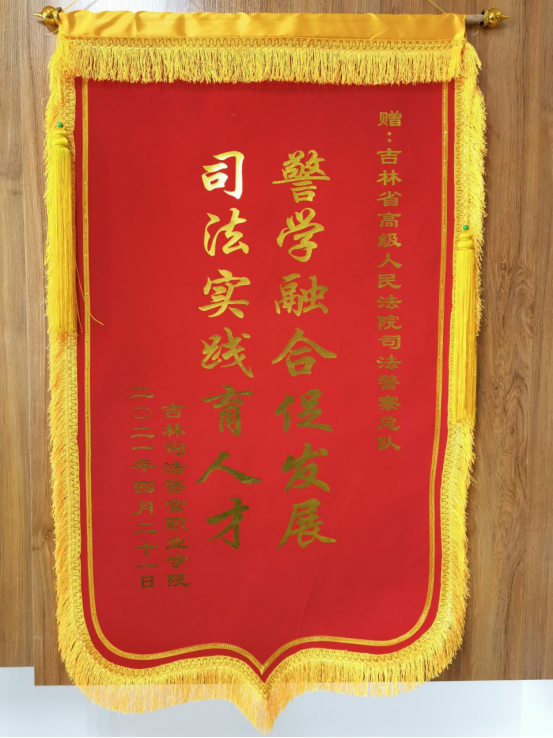 赠：吉林省高级人民法院司法警察总队
警学融合促发展
司法实践育人才
吉林司法警官职业学院
二〇二一年四月二十一日